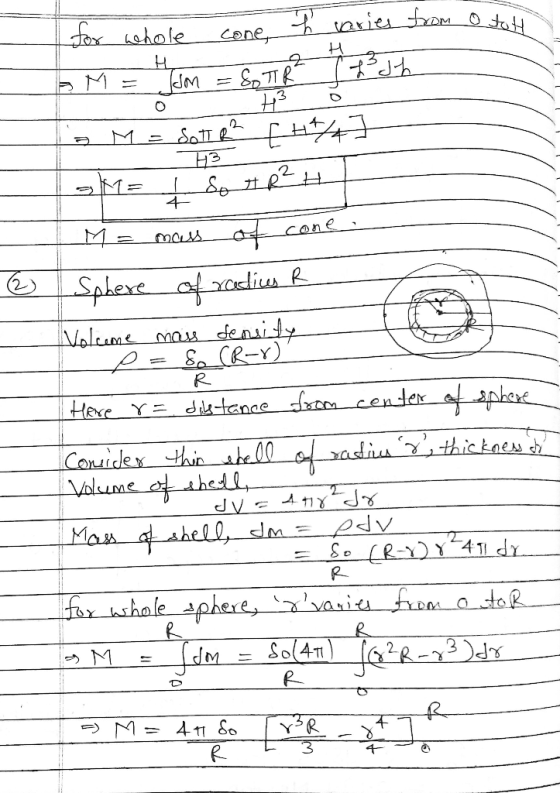 for whole cone, 'h' varies from 0 to H
⇒ M = ∫₀ᴴ dm = δ₀πR²/H³ ∫₀ᴴ h³dh
⇒ M = δ₀πR²/H³ [H⁴/4]
⇒ M = 1/4 δ₀ πR²H
M = mass of cone.
② Sphere of radius R
Volume mass density
ρ = δ₀/R (R-r)
r
R
Here r = distance from center of sphere
Consider thin shell of radius 'r', thickness 'dr'
Volume of shell,
dV = 4πr²dr
Mass of shell, dm = ρdV
= δ₀/R (R-r) r² 4π dr
for whole sphere, 'r' varies from 0 to R
⇒ M = ∫₀ᴿ dm = δ₀(4π)/R ∫₀ᴿ (r²R - r³)dr
⇒ M = 4πδ₀/R [r³R/3 - r⁴/4]₀ᴿ